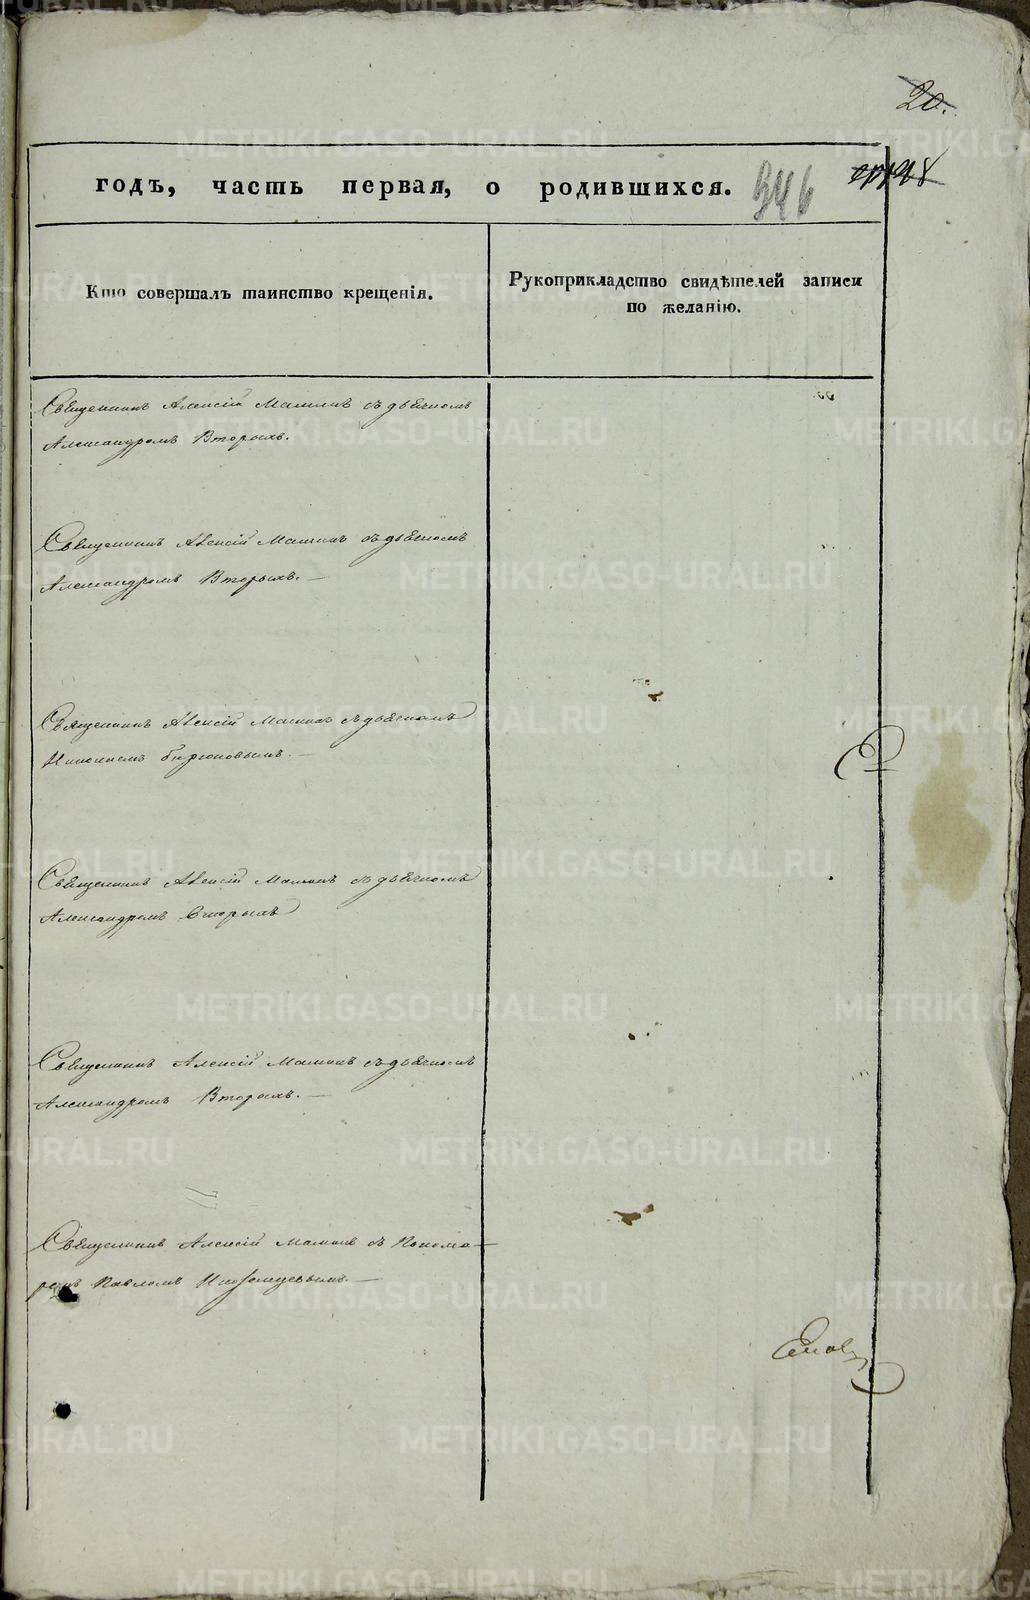 20.
годъ, часть первая, о родившихся. 346
Кто совершалъ таинство крещенія.
Рукоприкладство свидѣтелей записи
по желанію.
Священникъ Алексій Маминъ съ дьячкомъ
Александромъ Вторыхъ.
Священникъ Алексій Маминъ съ дьячкомъ
Александромъ Вторыхъ. —
Священникъ Алексій Маминъ съ дьячкомъ
Николаемъ Бирюковымъ. —
Священникъ Алексій Маминъ съ дьячкомъ
Александромъ Вторыхъ
Священникъ Алексій Маминъ съ дьячкомъ
Александромъ Вторыхъ. —
Священникъ Алексій Маминъ съ Понома-
ремъ Павломъ —
METRIKI.GASO-URAL.RU